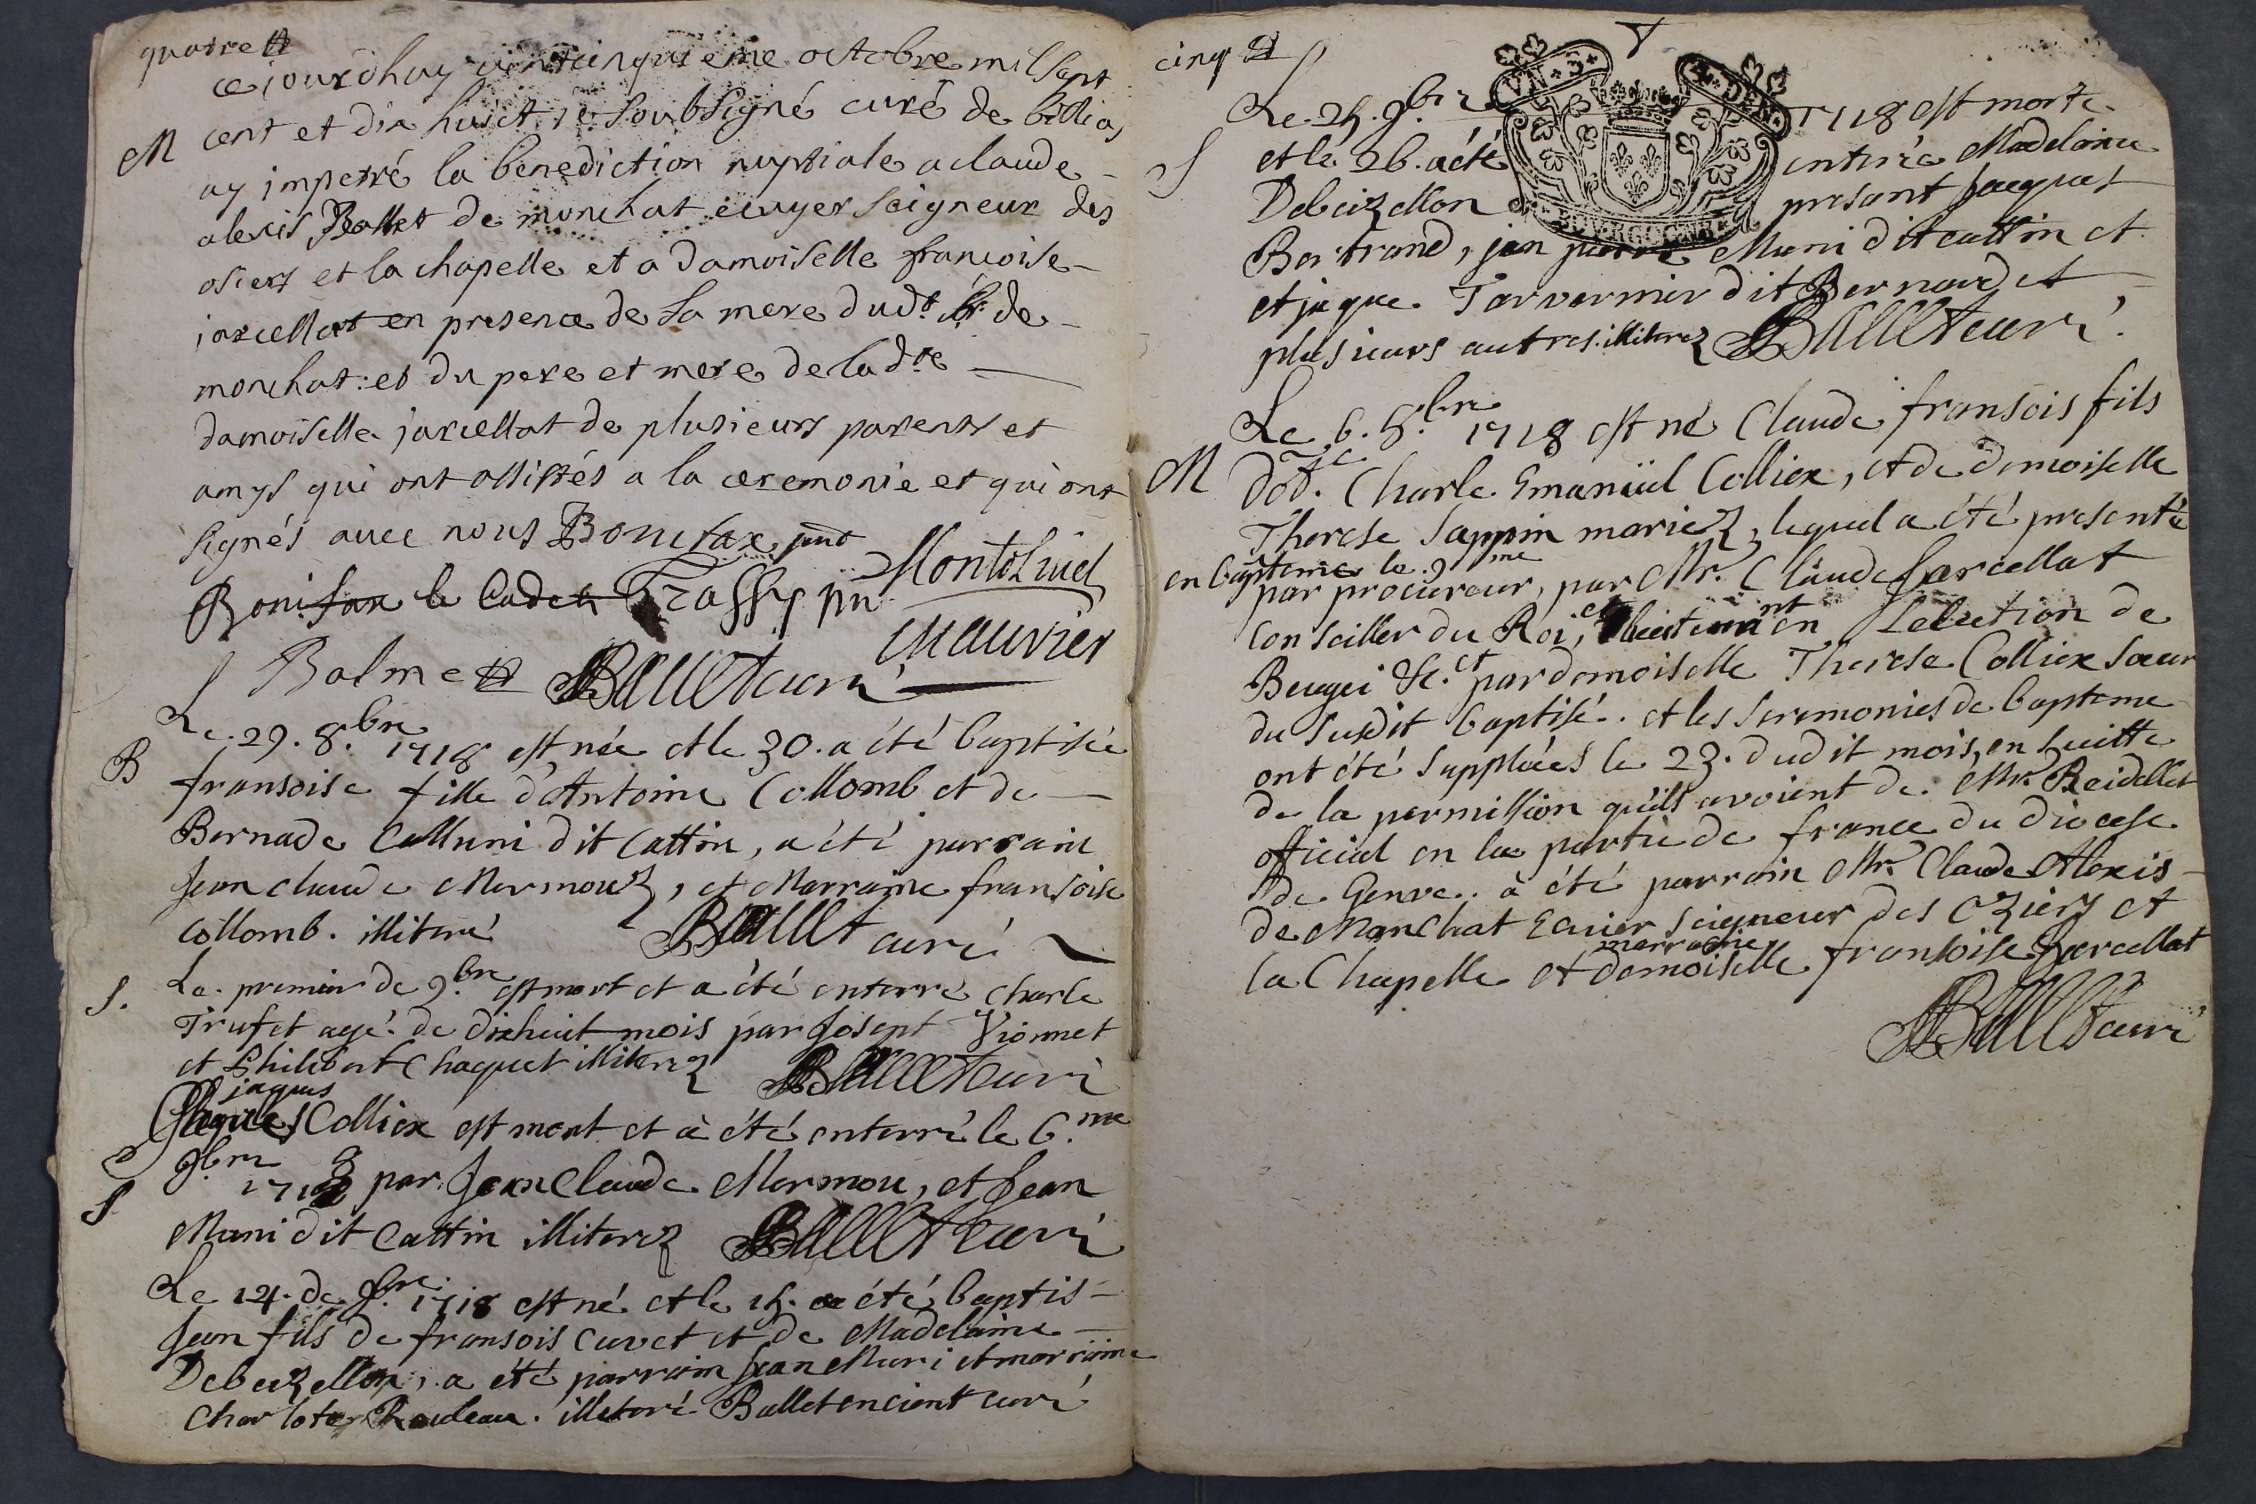 quatre
ce jourdhuy vintcinquieme octobre mil sept
M
cent et dix huict je soubsigné curé de billia
ay impetré la benediction nuptiale a claude
alexis Ballet de monchat ecuyer seigneur des
osiers et la chapelle et a damoiselle francoise
jarcellat en presence de la mere dudt Sr de
monchat et du pere et mere de ladte
damoiselle jarcellat de plusieurs parents et
amys qui ont assistés a la ceremonie et qui ont
signés avec nous Bonifax
Montoliued
Bonifax le Cadet Trassy
Mauvier
Balme Ballet curé
Le 29. 8.bre 1718 est née et le 30. a été baptisée
B
fransoise fille d'Antoine Collomb et de
Bernade Muni dit Cattin, a été parrain
Jean claude Mermouz, et Marraine fransoise
Collomb. illiteré Ballet curé
S.
Le premier de 9.bre est mort et a été enterré Charle
Trufet agé de dixhuit mois par Josept Vionnet
et Philibert Chaquet illiterez Ballet curé
jaques
Colliex est mort et à été enterré le 6.me
S
9bre 1718 par Jean Claude Mermou, et Jean
Muni dit Cattin illiterez Ballet curé
Le 14. de 9.bre 1718 est né et le 15. a été baptis
Jean fils de fransois Cuvet et de Madelaine
Debeizellon, a été parrain Jean Muni et marraine
Charlote Rouleau. illeteré Ballet encient curé
cinq
Le 25. 9.bre 1718 est morte
S
et le 26. a été enterée Madelaine
Debeizellon present Jacques
Bertrand, jan pierre Muni dit cattin et
et jaque Tarvernier dit Bernard et
plusieurs autres. illiterez Ballet curé.
Le 6. 8.bre 1718 est né Claude fransois fils
M
de Charle Emanüel Colliex, et de demoiselle
Therese Sappin mariez, lequel a été presenté
en baptemes le 9me
par procureur, par Mr. Claude Jarcellat
Conseiller du Roi, et lieutenant en Lelection de
Beugei &c. et par demoiselle Therese Colliex soeur
du susdit baptisé.. et les seremonies de bapteme
ont été supplées le 23. dudit mois, en suitte
de la permission qu'ils avoient de Mr. Reidellet
official en la partie de france du diocese
de Genve.. à été parrain Mr. Claude Alexis
de Monchat Ecuier seigneur des Oziers et
marraine
la Chapelle et demoiselle fransoise Jarcellat
Ballet curé